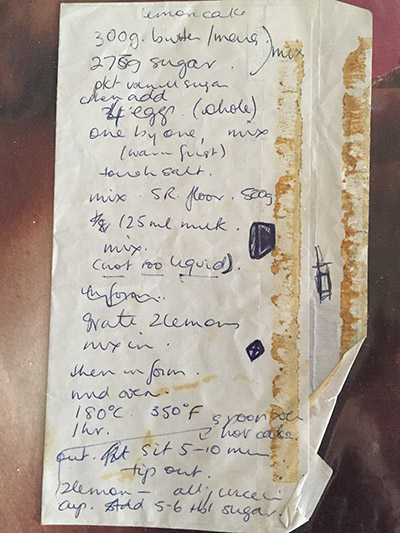 lemon cake
300g. butter/marg.
275g sugar. ) mix
pkt vanill sugar
then add
4 eggs (whole)
one by one, mix
(warm first)
touch salt.
mix S.R. flour. 500g
125ml milk.
mix.
(not too liquid).
in form.
grate 2 lemons
mix in.
then in form.
mid oven.
180°C. 350°F
1 hr.
out. sit 5-10 min
tip out.
2 lemon – all juice in
cup. Add 5-6 tbl sugar.